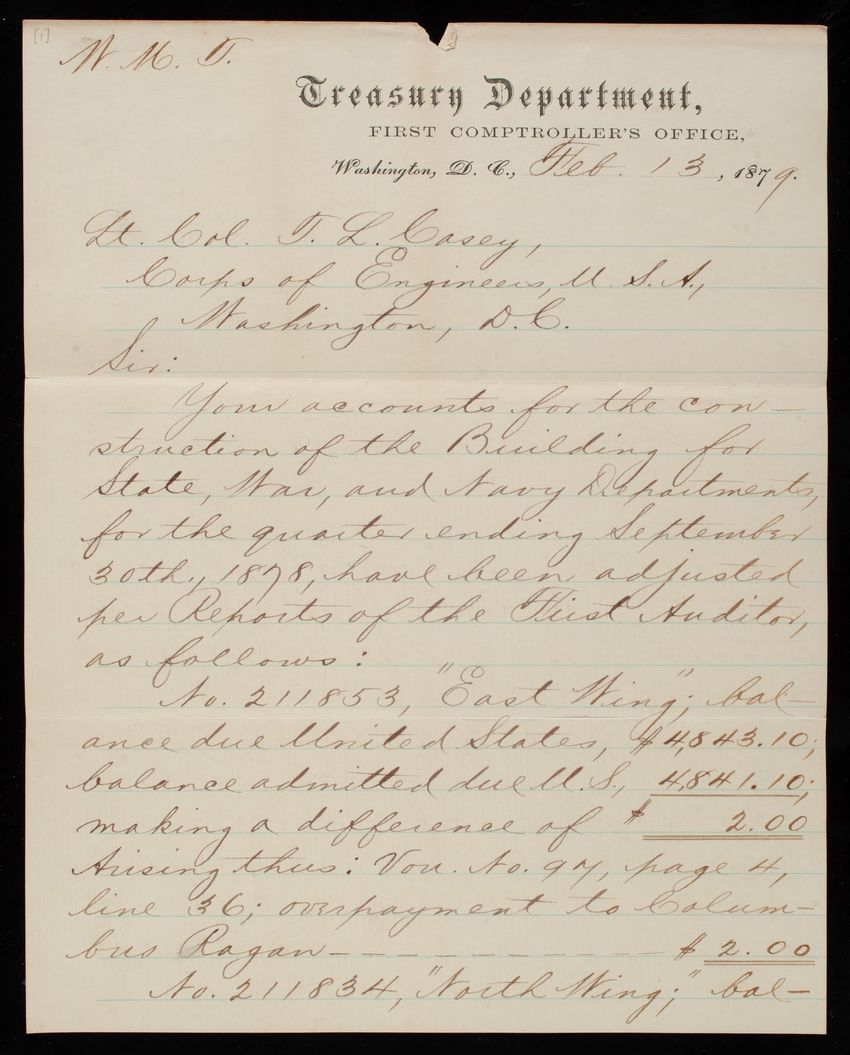 [1]
W. M. T.
Treasury Department,
FIRST COMPTROLLER'S OFFICE,
Washington, D. C., Feb. 13, 1879.
Lt. Col. T. L. Casey,
Corps of Engineers, U. S. A.,
Washington, D.C.
Sir:
Your accounts for the con-
struction of the Building for
State, War, and Navy Departments,
for the quarter ending September
30th, 1878, have been adjusted
per Reports of the First Auditor,
as follows:
No. 211853, "East Wing"; bal-
ance due United States, $4,843.10;
balance admitted due U. S., 4,841.10;
making a difference of $ 2.00
Arising thus: Vou. No. 97, page 4,
line 36; overpayment to Colum-
bus Ragan - - - - - - - - - - $ 2.00
No. 211834, "North Wing;" bal-